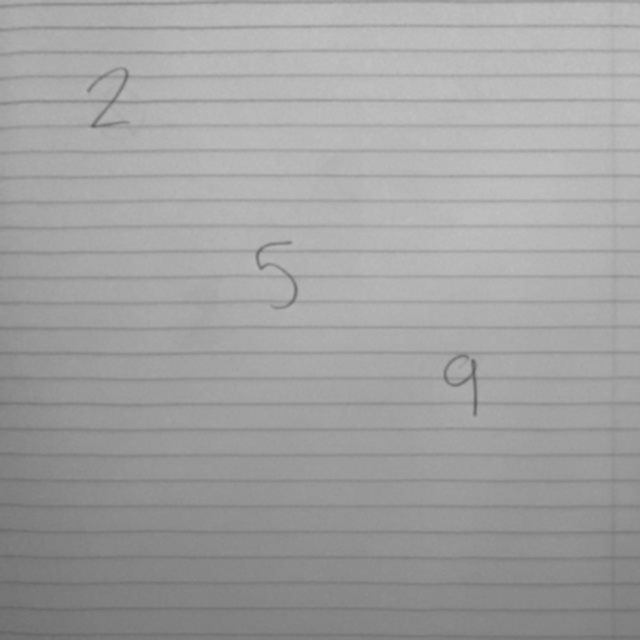 2
5
9